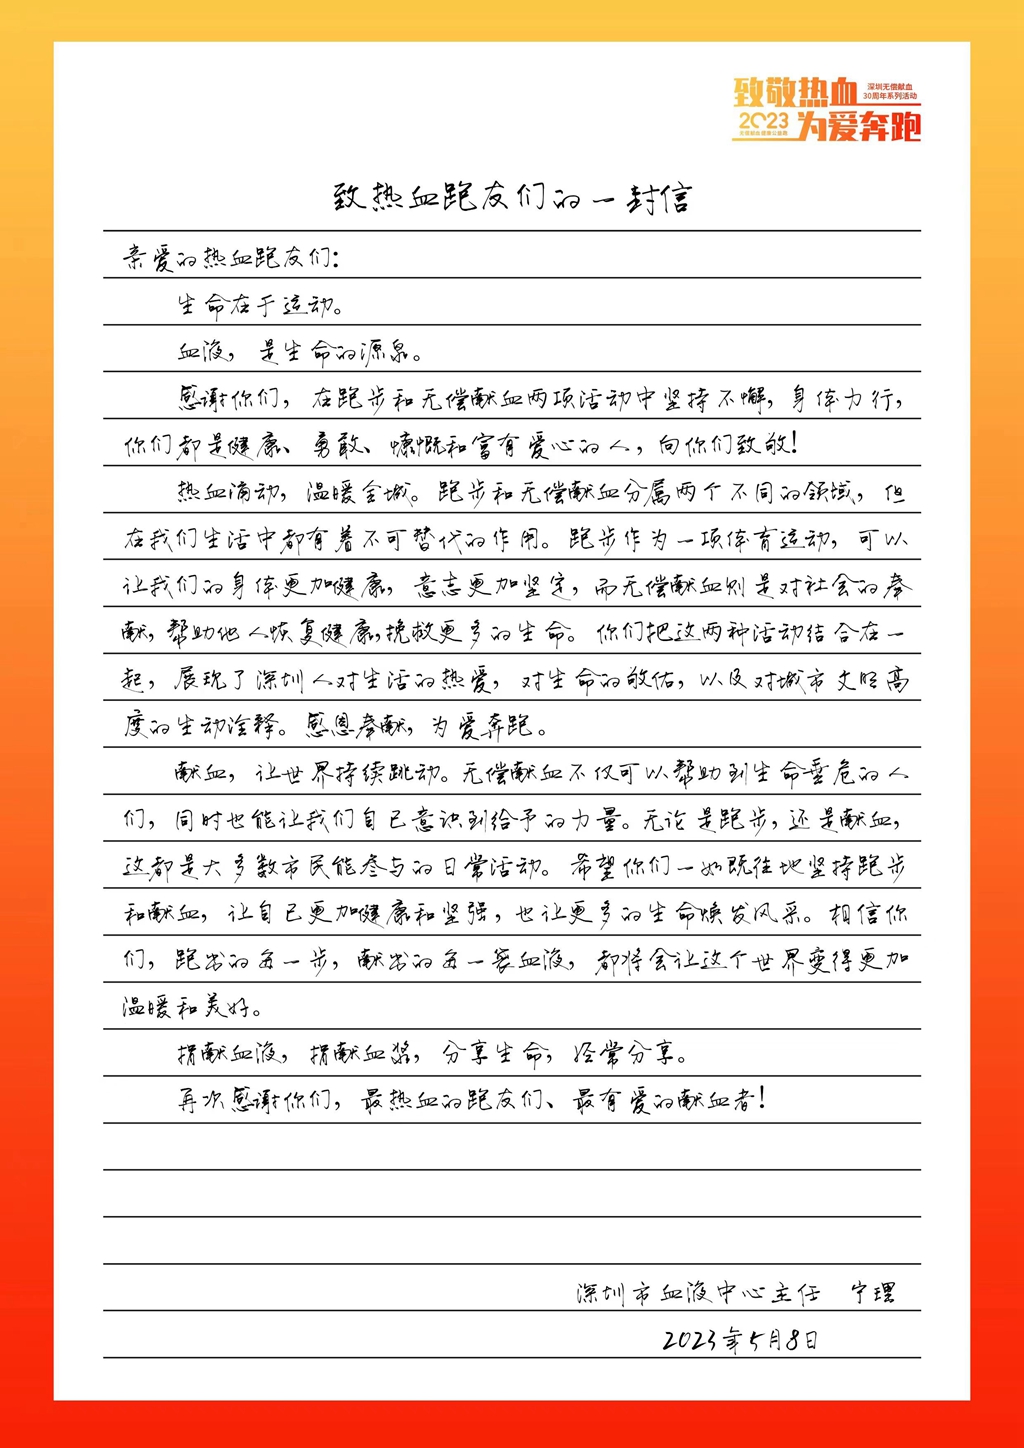 致敬热血
深圳无偿献血
30周年系列活动
2023
为爱奔跑
致热血跑友们的一封信
亲爱的热血跑友们：
生命在于运动。
血液，是生命的源泉。
感谢你们，在跑步和无偿献血两项活动中坚持不懈，身体力行，
你们都是健康、勇敢、慷慨和富有爱心的人，向你们致敬！
热血涌动，温暖全城。跑步和无偿献血分属两个不同的领域，但
在我们生活中都有着不可替代的作用。跑步作为一项体育运动，可以
让我们的身体更加健康，意志更加坚定，而无偿献血则是对社会的奉
献，帮助他人恢复健康，挽救更多的生命。你们把这两种活动结合在一
起，展现了深圳人对生活的热爱，对生命的敬佑，以及对城市文明高
度的生动诠释。感恩奉献，为爱奔跑。
献血，让世界持续跳动。无偿献血不仅可以帮助到生命垂危的人
们，同时也能让我们自己意识到给予的力量。无论是跑步，还是献血，
这都是大多数市民能参与的日常活动。希望你们一如既往地坚持跑步
和献血，让自己更加健康和坚强，也让更多的生命焕发风采。相信你
们，跑出的每一步，献出的每一袋血液，都将会让这个世界变得更加
温暖和美好。
捐献血液，捐献血浆，分享生命，经常分享。
再次感谢你们，最热血的跑友们、最有爱的献血者！
深圳市血液中心主任 宁理
2023年5月8日